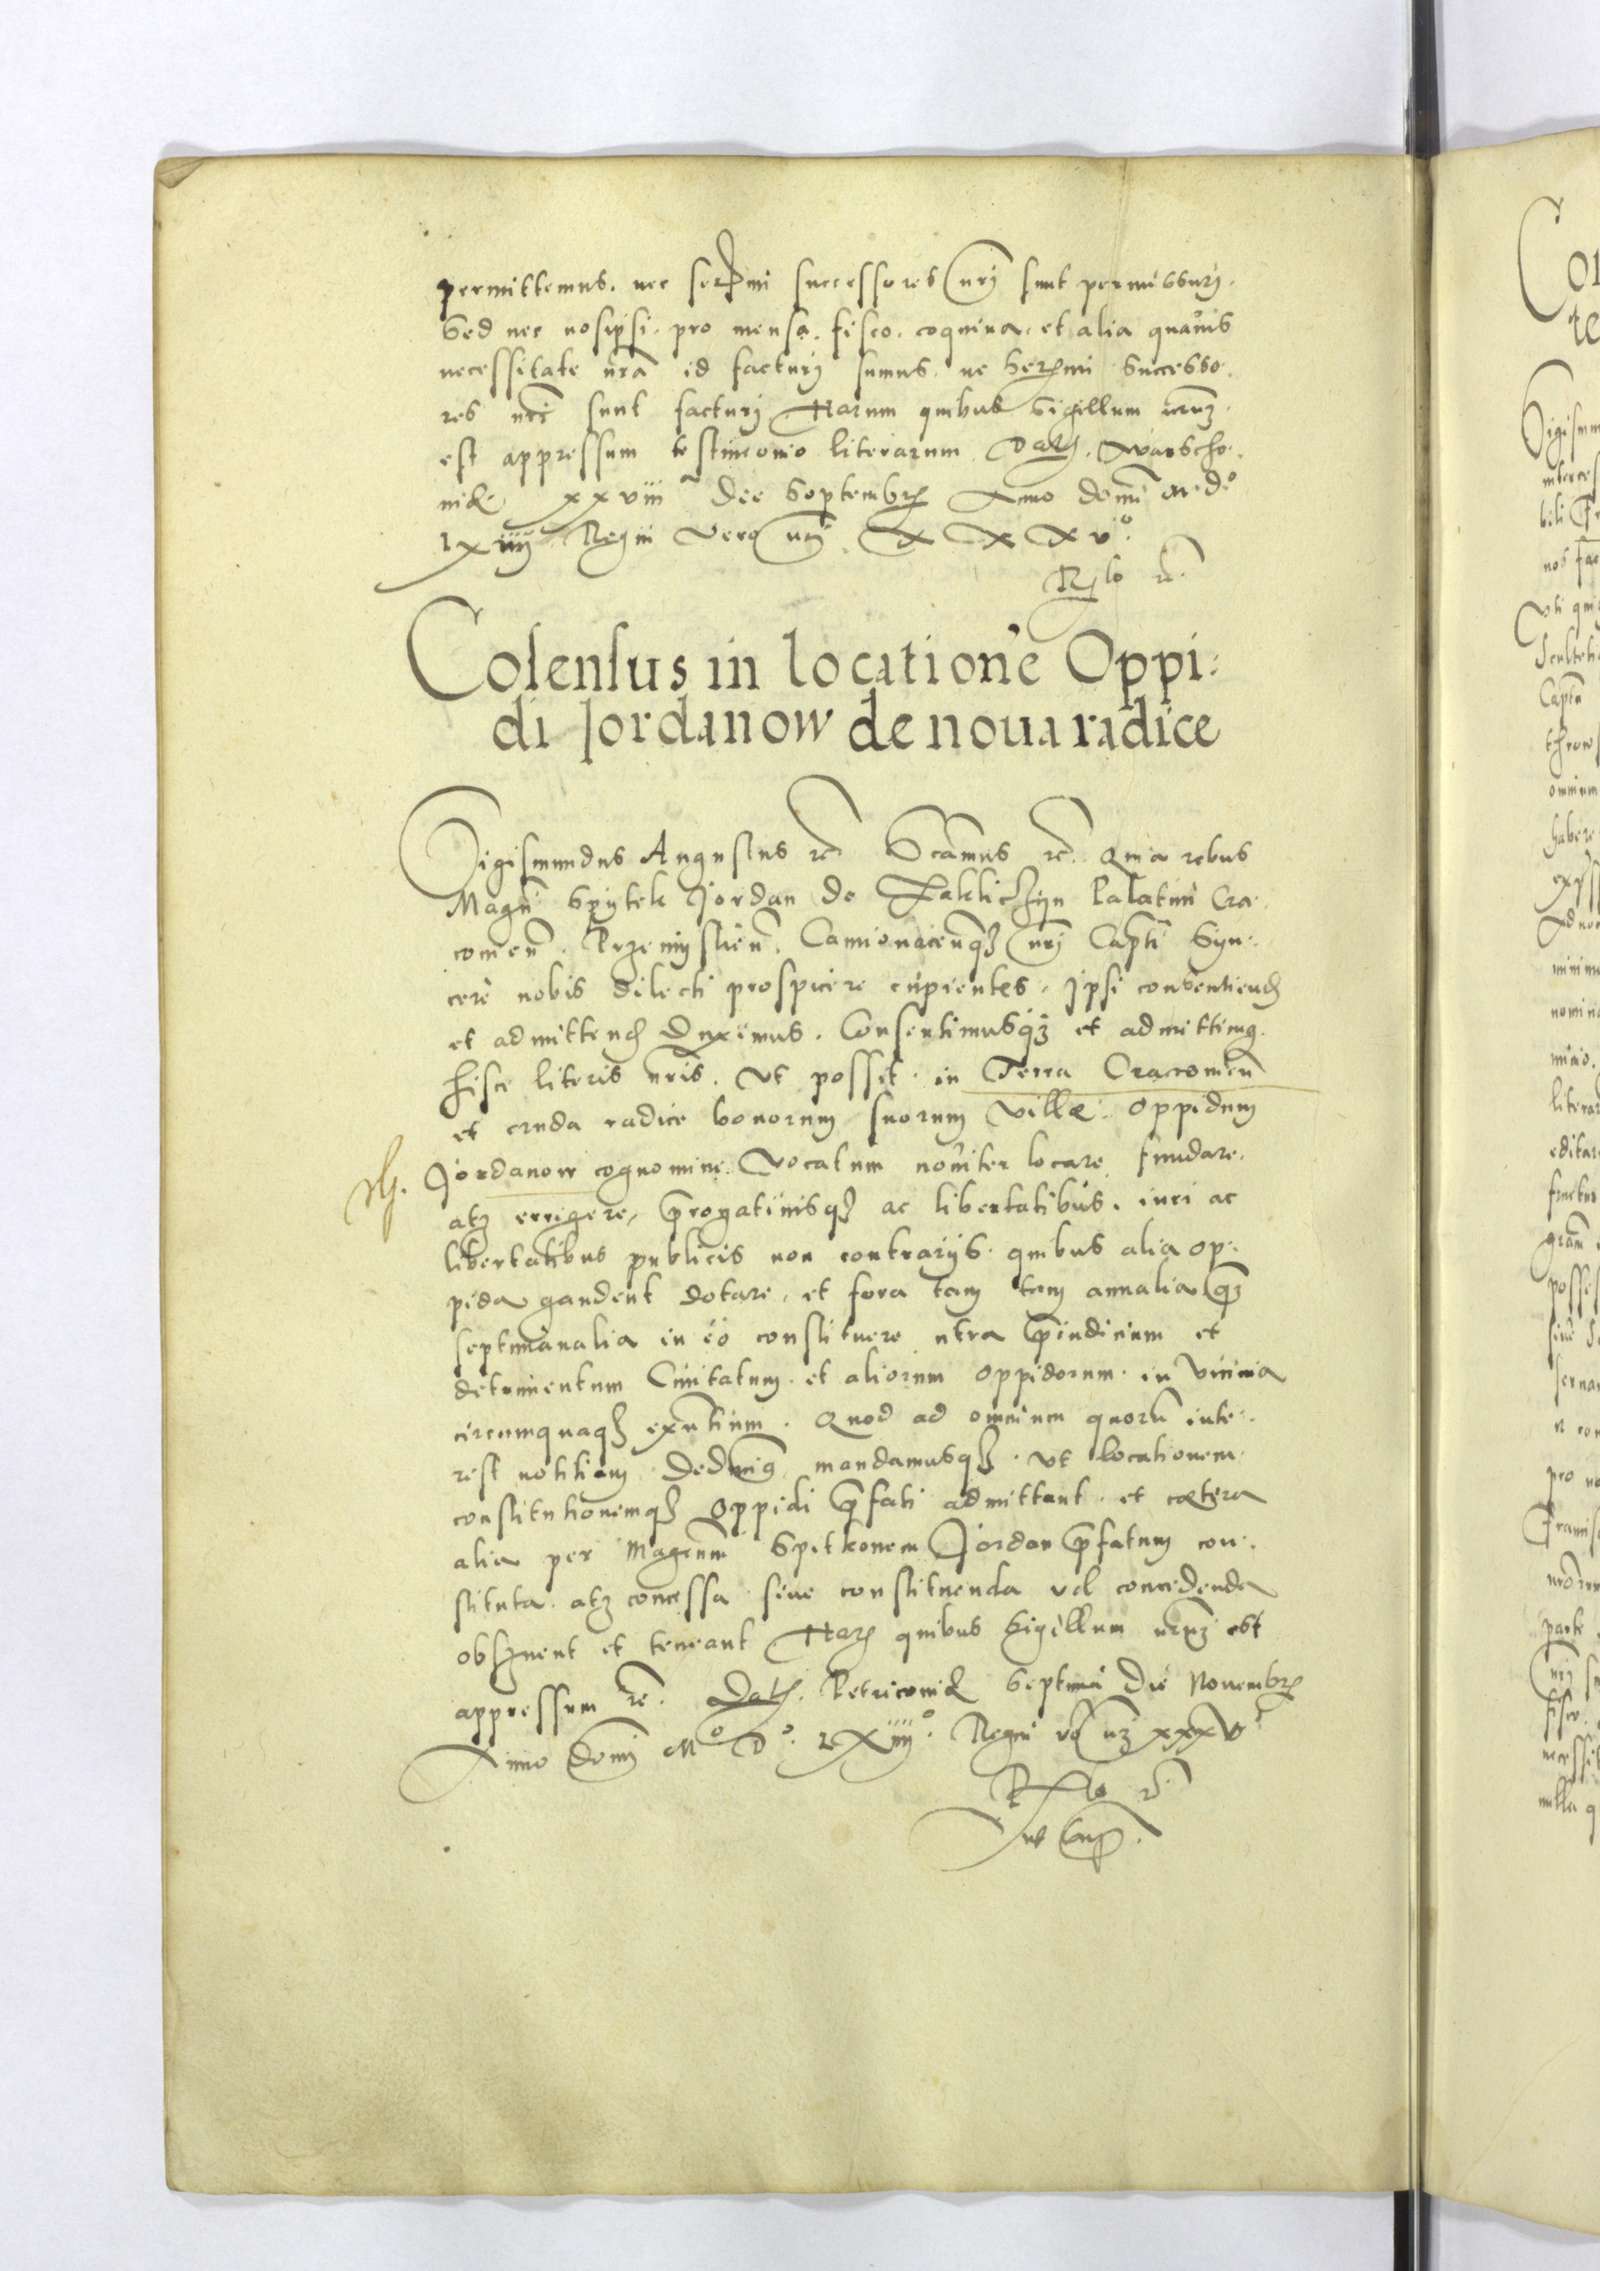 permittemus. nec serᵐi successores nrj sunt permissurj.
Sed nec nosipsi. pro mensa. fisco. coquina. et alia quavis
necessitate nrã id facturj sumus. ne Serᵐi Successo.
res nri sunt facturj Harum quibus Sigillum nrum
est appressum testimonio literarum Dat. Warscho.
niæ xxviii Die Septembr Anno domi M.d.º
lxiiij Regni vero nrj. X X X vº.
Colensus in locatione Oppi:
di Jordanow de noua radice
Sigismundus Augustus rc Scamus rc. Quia rebus
Magci Spytek Jordan de Zaklicżyn Palatini Cra.
comen. Przemyslien. Camionacenq nrj Capti Syn.
cere nobis dilecti prospicere cupientes. Jpsi consentiend
et admittend duximus. Consentimusq et admittimg.
hisce literis nris. Ut possit. in Terra Cracomen
et cruda radice bonorum suorum Villæ. oppidum
Jordanow cognomine. Vocatum noviter locare, fundare.
atq errigere, prerogatiuisq ac libertatibus. iuri ac
libertatibus publicis non contrarijs. quibus alia op.
pida gaudent dotare, et fora tam tam annalia q
septimanalia in eo constituere citra preiudicium et
detrimentum Ciuitatum. et aliorum oppidorum. in Vicinia
circumquaq exntium. Quod ad omnium quorũ inte..
rest notitiam deducimg mandamusq. ut locationem.
constitutionemq oppidi prefati admittant. et cætera
alia per Magcum Spitkonem Jordan prefatum con.
stituta. atq concessa. siue constituenda vel concedenda
obseruent et teneant Har quibus Sigillum nrum est
appressum rc. Dat. Petricouiæ Septima Die Nouembr
Anno domi Mº Dº. LXiiijº. Regni vo n xxxvº